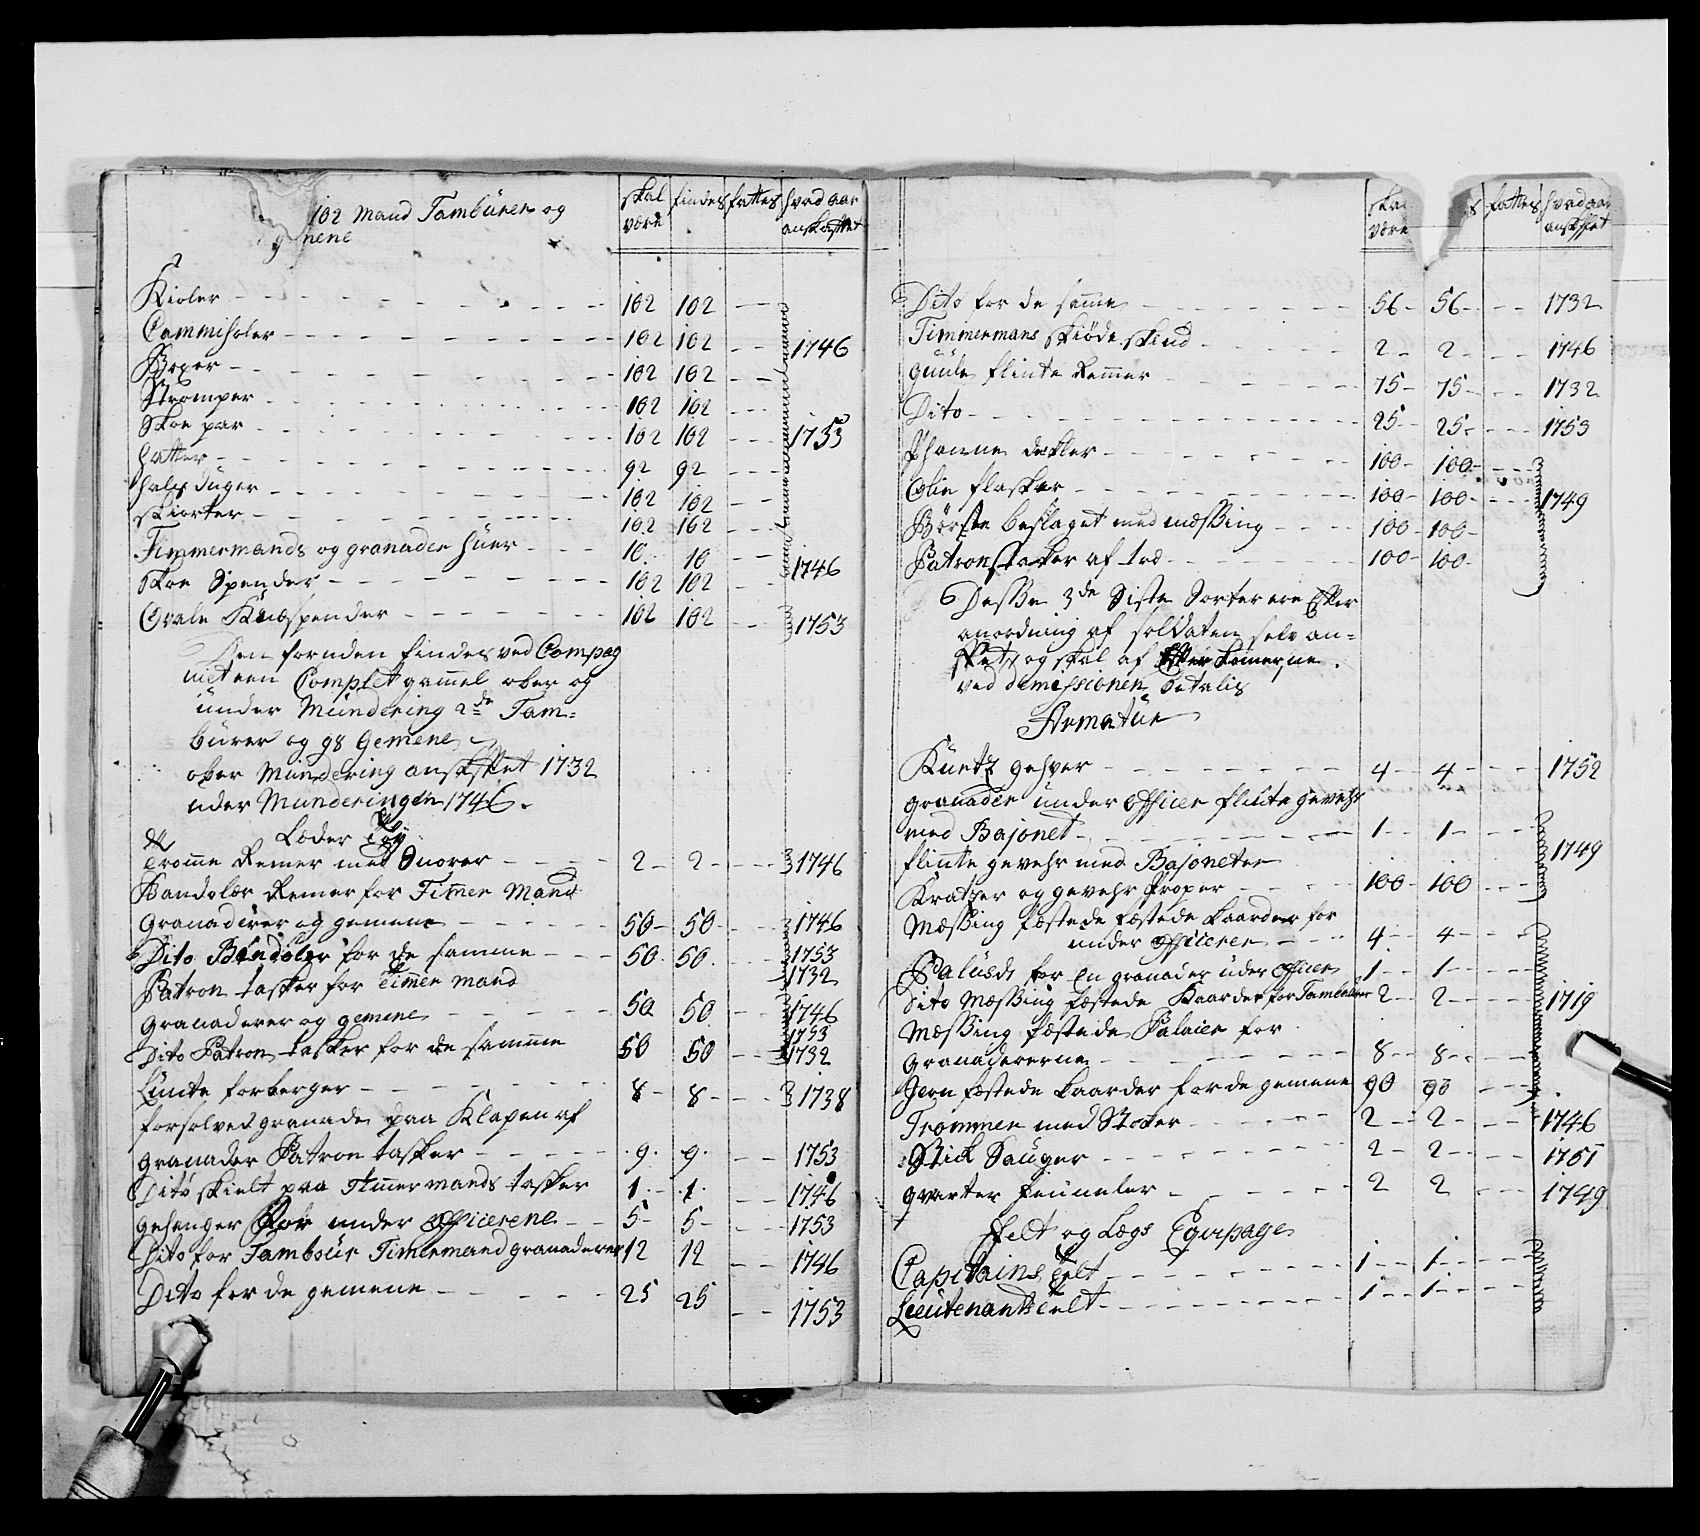 102 mand Tambürer og
nene
skal være findes fattes hvad aar anskaffet
Kioler 102 102
Cammisoler 102 102 1746
Boxer 102 102
Strømper 102 102
Skoe par 102 102 1753
hatter 92 92
hals duger 102 102
skiorter 102 102
Timmermands og granader huer 10 10
skoe Spender 102 102 1746
Ovale Knæspender 102 102 1753
Den foruden findes ved Compag
niet een Complet gammel ober og
under Mundering 2de Tam=
burer og 98 Gemene
ober Mundering anskaffet 1732
under Munderingen 1746.
Læder Tøy
Tromme Remer med Snorer 2 2 1746
Bandoler Remer for Timer Mand
Granaderer og gemene 50 50 1746
Dito Bandoler for de samme 50 50 1753
1732
Patron tasker for Timer mand
Granaderer og gemene 50 50 1746
1753
Dito Patron tasker for de samme 50 50 1732
Lunte forberger 8 8 1738
forsolved granade paa Klapen af
granader Patron tasker 9 9 1753
Dito skielt paa Timermands tasker 1 1 1746
gehenger for under officerene 5 5 1753
Dito for Tambour Timermand granaderer 12 12 1746
Dito for de gemene 25 25 1753
skal være fattes hvad aar anskaffet
Dito for de samme 56 56 1732
Timmermans skiøde skind 2 2 1746
guule flinte Remmer 75 75 1732
Dito 25 25 1753
Phanne dekler 100 100
Olie flasker 100 100 1749
Børste beslaget med messing 100 100
Patronstaker af træ 100 100
Disse 3de Siste Sorter ere Efter
anordning af soldaten selv an=
skaft og skal af Efterkomerne
ved demissionen betalis
Armatür
Kurtz gehver 4 4 1752
granader under officer flinte gevehr
med Bajonet 1 1
flinte gevehr med Bajoneter 1749
Kratzer og gevehr Proper 100 100
Messing fæstede kaarder for
under officerer 4 4
Palusch for En granader under officer 1 1
Dito Messing fæstede Kaarder for Tamburer 2 2 1719
Messing fæstede Palaser for
granadererne 8 8
Jern fæstede kaarder for de gemene 90 90
Trommer med Stoker 2 2 1746
Stick Sauger 2 2 1751
qverter feuneler 2 2 1749
Felt og Legs Equipage
Capitains Telt 1 1
Lieutenants Telt 1 1